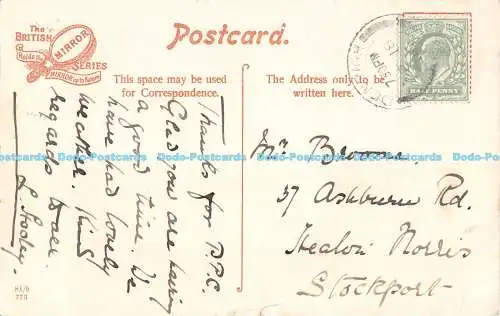 The
BRITISH
MIRROR
SERIES
Holds the
MIRROR up to Nature
Postcard.
This space may be used
for Correspondence.
The Address only to be
written here.
HALF PENNY
Thanks for P.P.C.
Glad you are having
a good time. We
have had lovely
weather. Kind
regards to all
Mrs Broome.
37 Ashburn Rd.
Heaton Norris
Stockport
Dodo-Postcards Dodo-Postcards Dodo-Postcards Dodo-Postcards Dodo-Postcards